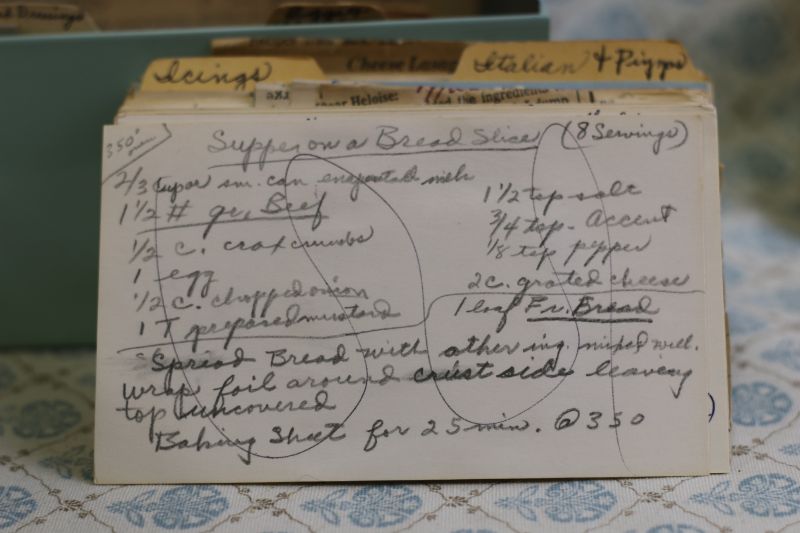 Icings
Cheese
Italian & Pizza
Heloise:
the ingredients
350°
Supper on a Bread Slice (8 Servings)
2/3 cup or sm. can evaporated milk
1 1/2 # gr. Beef
1/2 c. crax crumbs
1 egg
1/2 c. chopped onion
1 T prepared mustard
1 1/2 tsp salt
3/4 tsp. Accent
1/8 tsp pepper
2 c. grated cheese
1 loaf Fr. Bread
Spread Bread with other ing. mixed well.
wrap foil around crust side leaving
top uncovered
Baking Sheet for 25 min. @ 350